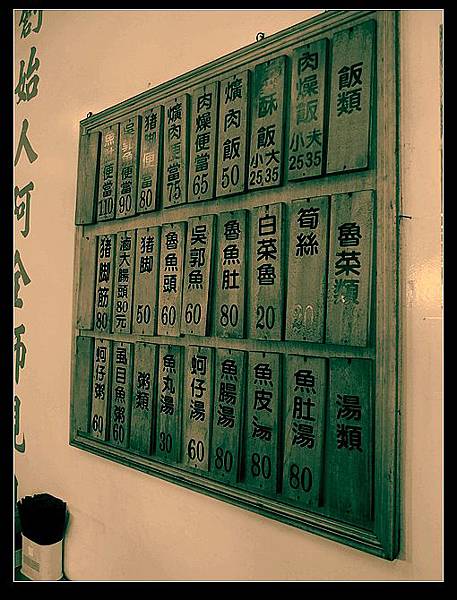 創始人阿全師兄
飯類
肉燥飯 小25 大35
酥飯 小25 大35
爌肉飯 50
肉燥便當 65
爌肉便當 75
猪脚便當 80
吳郭便當 90
魚便當 110
魯菜類
筍絲 20
白菜魯 20
魯魚肚 80
吳郭魚 60
魯魚頭 60
猪脚 50
滷大腸頭 80元
猪脚筋 80
湯類
魚肚湯 80
魚皮湯 80
魚腸湯 80
蚵仔湯 60
魚丸湯 30
粥類
虱目魚粥 60
蚵仔粥 60